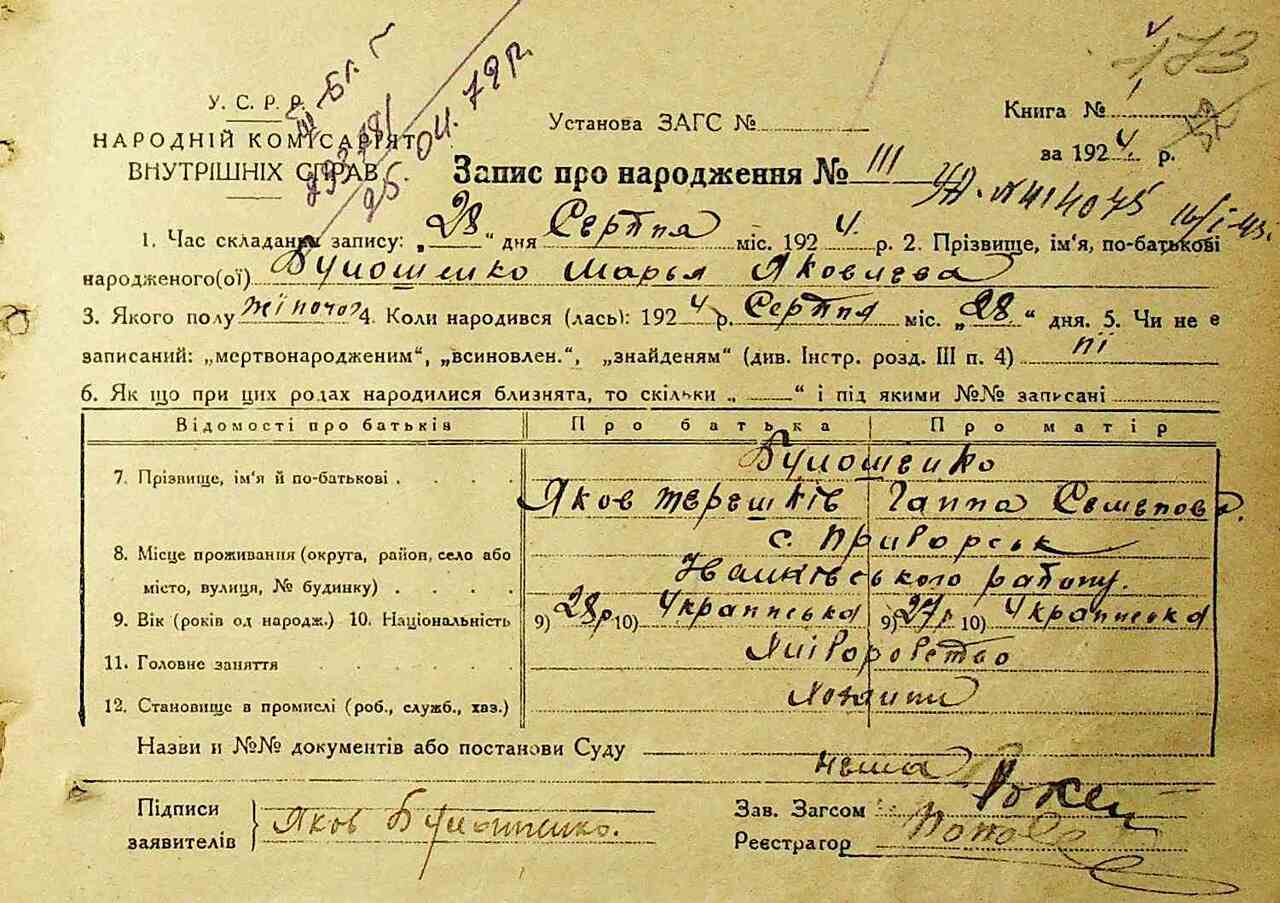 173
У. С. Р. Р.
НАРОДНІЙ КОМІСАРІЯТ
ВНУТРІШНІХ СПРАВ
04. 72 р.
25.
Установа ЗАГС №
Книга №
за 1924 р.
Запис про народження № 111
16/I-43.
1. Час складання запису: „28“ дня Серпня міс. 1924. р. 2. Прізвище, ім'я, по-батькові
народженого(ої) Булошенко Марья Яковлева
3. Якого полу жіночог 4. Коли народився (лась): 1924 р. Серпня міс. „28“ дня. 5. Чи не є
записаний: „мертвонародженим“, „всиновлен.“, „знайденям“ (див. Інстр. розд. III п. 4) ні
6. Як що при цих родах народилися близнята, то скільки „ “ і під якими №№ записані
Відомості про батьків Про батька Про матір
7. Прізвище, ім'я й по-батькові . . . . Булошенко
Яков Терешків Ганна Семенова.
8. Місце проживання (округа, район, село або с. Приворськ
місто, вулиця, № будинку) . . . . Іванківського району.
9. Вік (років од народж.) 10. Національність 9) 28р 10) Українська 9) 27р 10) Українська
11. Головне заняття . . . . .
12. Становище в промислі (роб., служб., хаз.) Хозаини
Назви и №№ документів або постанови Суду нема
Підписи
заявителів Яков Булошенко.
Зав. Загсом
Реєстратор